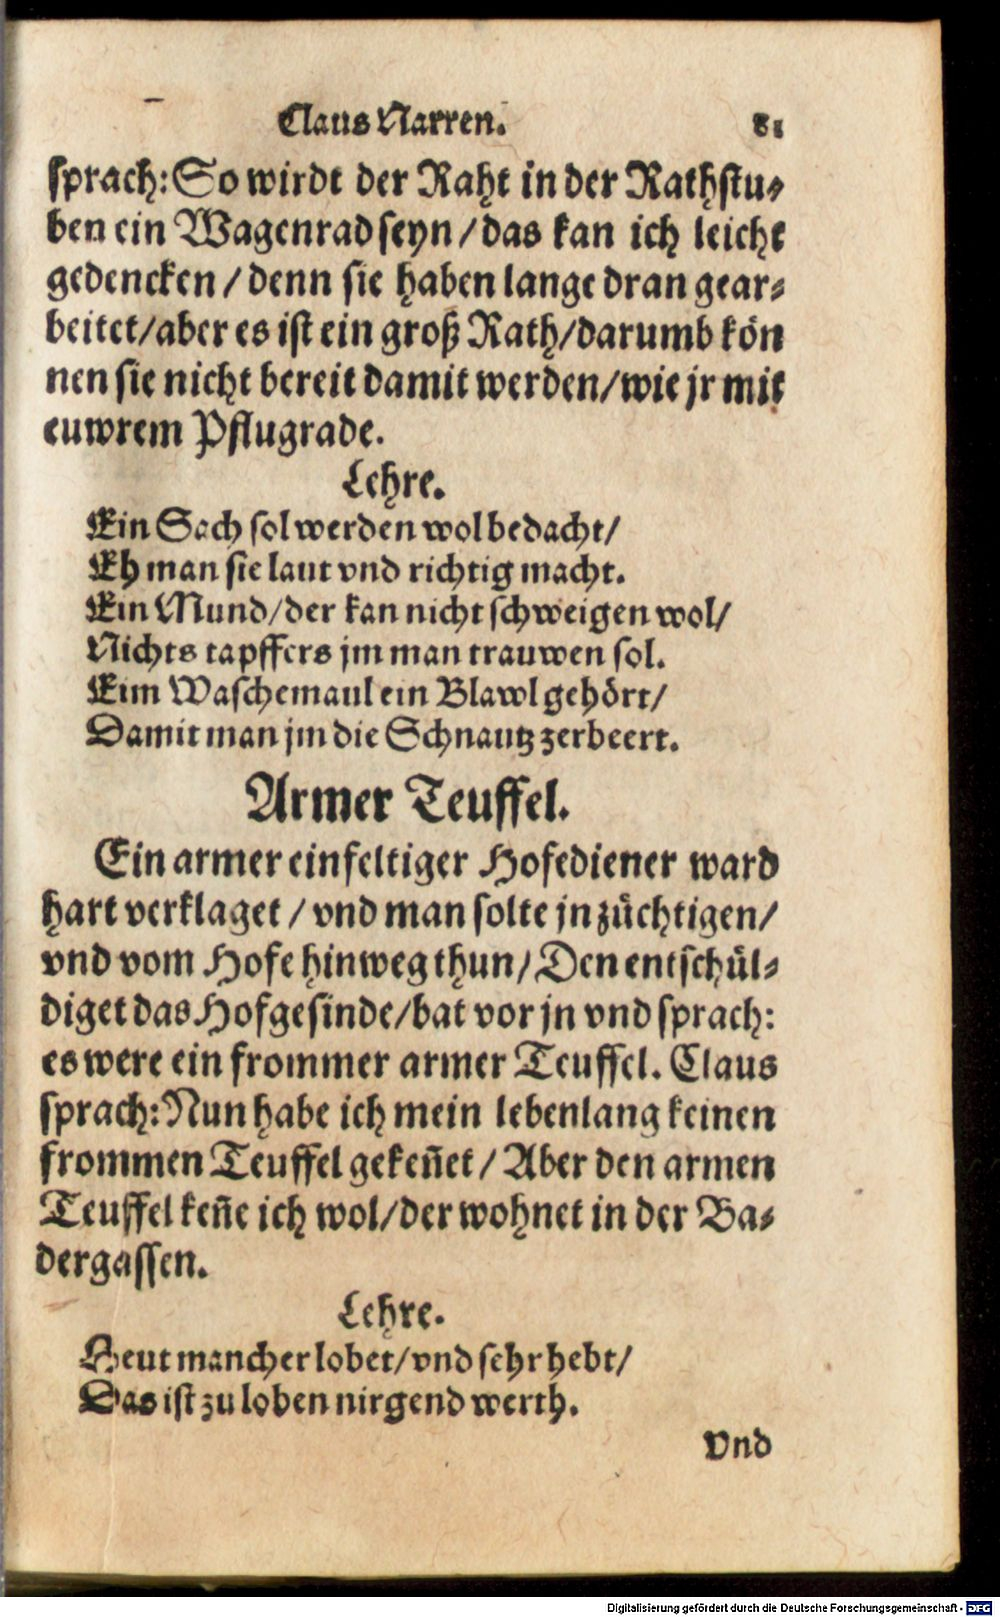 Claus Narren. 81
sprach: So wirdt der Raht in der Rathstu-
ben ein Wagenrad seyn / das kan ich leicht
gedencken / denn sie haben lange dran gear-
beitet/aber es ist ein groß Rath/darumb kön
nen sie nicht bereit damit werden/wie jr mit
euwrem Pflugrade.
Lehre.
Ein Sach sol werden wol bedacht/
Eh man sie laut vnd richtig macht.
Ein Mund/der kan nicht schweigen wol/
Nichts tapffers jm man trauwen sol.
Eim Waschemaul ein Blawl gehört/
Damit man jm die Schnautz zerbeert.
Armer Teuffel.
Ein armer einfeltiger Hofediener ward
hart verklaget / vnd man solte jn züchtigen/
vnd vom Hofe hinweg thun/Den entschül-
diget das Hofgesinde/bat vor jn vnd sprach:
es were ein frommer armer Teuffel. Claus
sprach: Nun habe ich mein lebenlang keinen
frommen Teuffel gekeñet / Aber den armen
Teuffel keñe ich wol/der wohnet in der Ba-
dergassen.
Lehre.
Heut mancher lobet/vnd sehr hebt/
Das ist zu loben nirgend werth.
Vnd
Digitalisierung gefördert durch die Deutsche Forschungsgemeinschaft - DFG